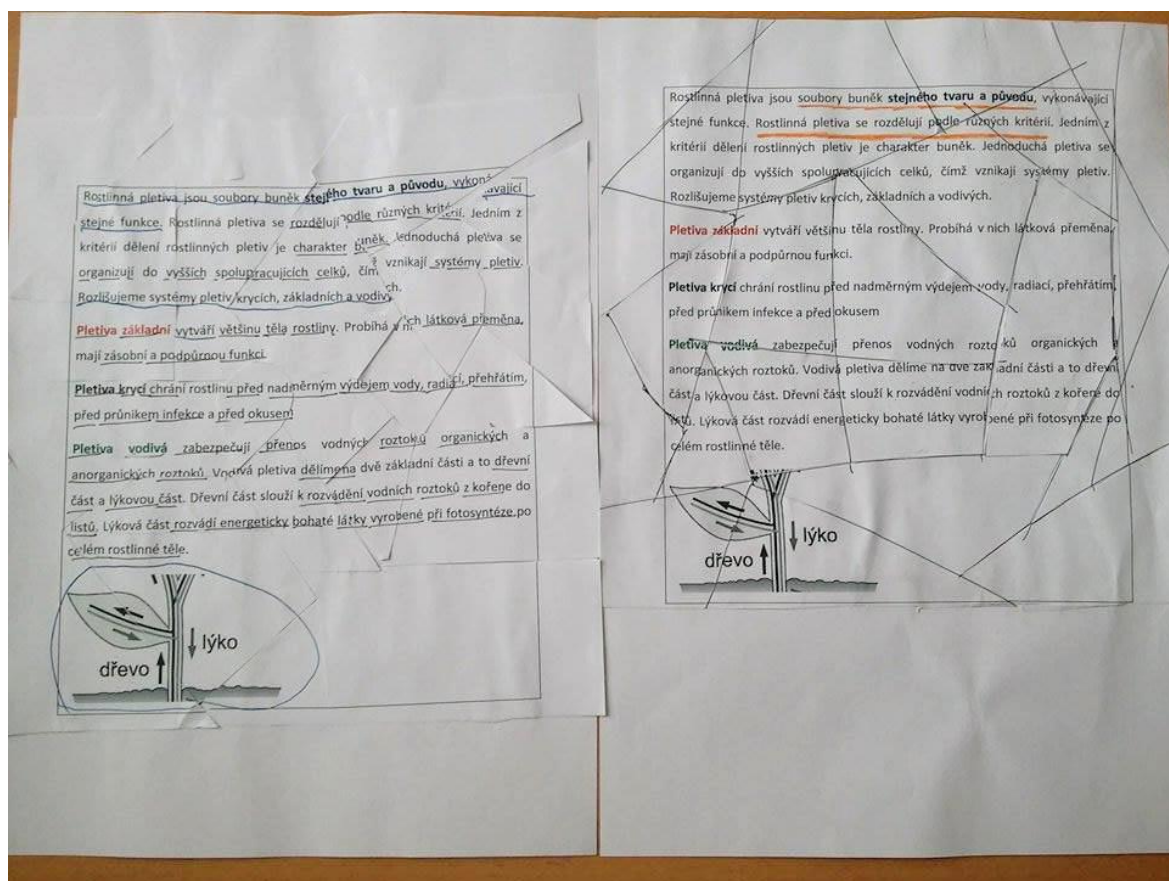 Rostlinná pletiva jsou soubory buněk stejného tvaru a původu, vykonávající
stejné funkce. Rostlinná pletiva se rozdělují podle různých kritérií. Jedním z
kritérií dělení rostlinných pletiv je charakter buněk. Jednoduchá pletiva se
organizují do vyšších spolupracujících celků, čím vznikají systémy pletiv.
Rozlišujeme systémy pletiv krycích, základních a vodivých.
Pletiva základní vytváří většinu těla rostliny. Probíhá v nich látková přeměna,
mají zásobní a podpůrnou funkci.
Pletiva krycí chrání rostlinu před nadměrným výdejem vody, radiací, přehřátím,
před průnikem infekce a před okusem
Pletiva vodivá zabezpečují přenos vodných roztoků organických a
anorganických roztoků. Vodivá pletiva dělíme na dvě základní části a to dřevní
část a lýkovou část. Dřevní část slouží k rozvádění vodních roztoků z kořene do
listů. Lýková část rozvádí energeticky bohaté látky vyrobené při fotosyntéze po
celém rostlinné těle.
lýko
dřevo
Rostlinná pletiva jsou soubory buněk stejného tvaru a původu, vykonávající
stejné funkce. Rostlinná pletiva se rozdělují podle různých kritérií. Jedním z
kritérií dělení rostlinných pletiv je charakter buněk. Jednoduchá pletiva se
organizují do vyšších spolupracujících celků, čímž vznikají systémy pletiv.
Rozlišujeme systémy pletiv krycích, základních a vodivých.
Pletiva základní vytváří většinu těla rostliny. Probíhá v nich látková přeměna,
mají zásobní a podpůrnou funkci.
Pletiva krycí chrání rostlinu před nadměrným výdejem vody, radiací, přehřátím,
před průnikem infekce a před okusem
Pletiva vodivá zabezpečují přenos vodných roztoků organických a
anorganických roztoků. Vodivá pletiva dělíme na dvě základní části a to dřevní
část a lýkovou část. Dřevní část slouží k rozvádění vodních roztoků z kořene do
listů. Lýková část rozvádí energeticky bohaté látky vyrobené při fotosyntéze po
celém rostlinné těle.
lýko
dřevo